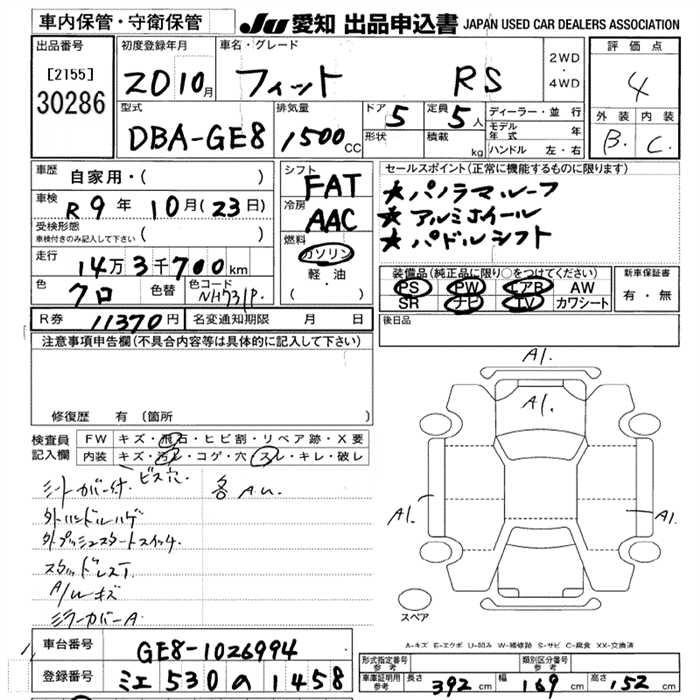 車内保管・守衛保管
JU 愛知 出品申込書 JAPAN USED CAR DEALERS ASSOCIATION
出品番号
[2155]
30286
初度登録年月
20 10月
車名・グレード
フィット RS
2WD
・
4WD
評価点
4
外装 内装
B. C.
型式
DBA-GE8
排気量
1500cc
ドア 5
形状
定員 5人
積載 kg
ディーラー・並行
モデル年式 年
ハンドル 左・右
車歴
自家用・( )
車検
R9年 10月(23日)
受検形態
車検付きのみ記入して下さい ( )
走行
14万3千700km
色
クロ
色替
色 カラーNo.
NH731P.
シフト
FAT
冷房
AAC
燃料
ガソリン
軽・油
( ・ )
セールスポイント(正常に機能するものに限ります)
★パノラマルーフ
★アルミホイール
★パドルシフト
装備品(純正品に限り○をつけてください)
PS PW エアB AW
SR ナビ TV カワシート
新車保証書
有・無
R券 11370円
名変通知期限 月 日
後日品
注意事項申告欄(不具合内容等は具体的に記入して下さい)
修復歴 有(箇所 )
検査員記入欄
FW キズ・飛石・ヒビ割・リペア跡・X要
内装 キズ・汚レ・コゲ・穴・スレ・キレ・破レ
ビス穴.
シートカバー付
各AU.
外ハンドルハゲ
外プッシュスタートスイッチ
スタッドレスT
A/Wキズ
ミラーカバーA
A1.
A1.
A1.
A1.
スペア
A-キズ E-エクボ U-凹み W-補修跡 S-サビ C-腐食 XX-交換済
車台番号
GE8-1026994
登録番号
ミエ 530 の 1458
形式指定番号 参考
類別区分番号 参考
車庫証明用 参考
長さ 392cm 幅 169cm 高さ 152cm